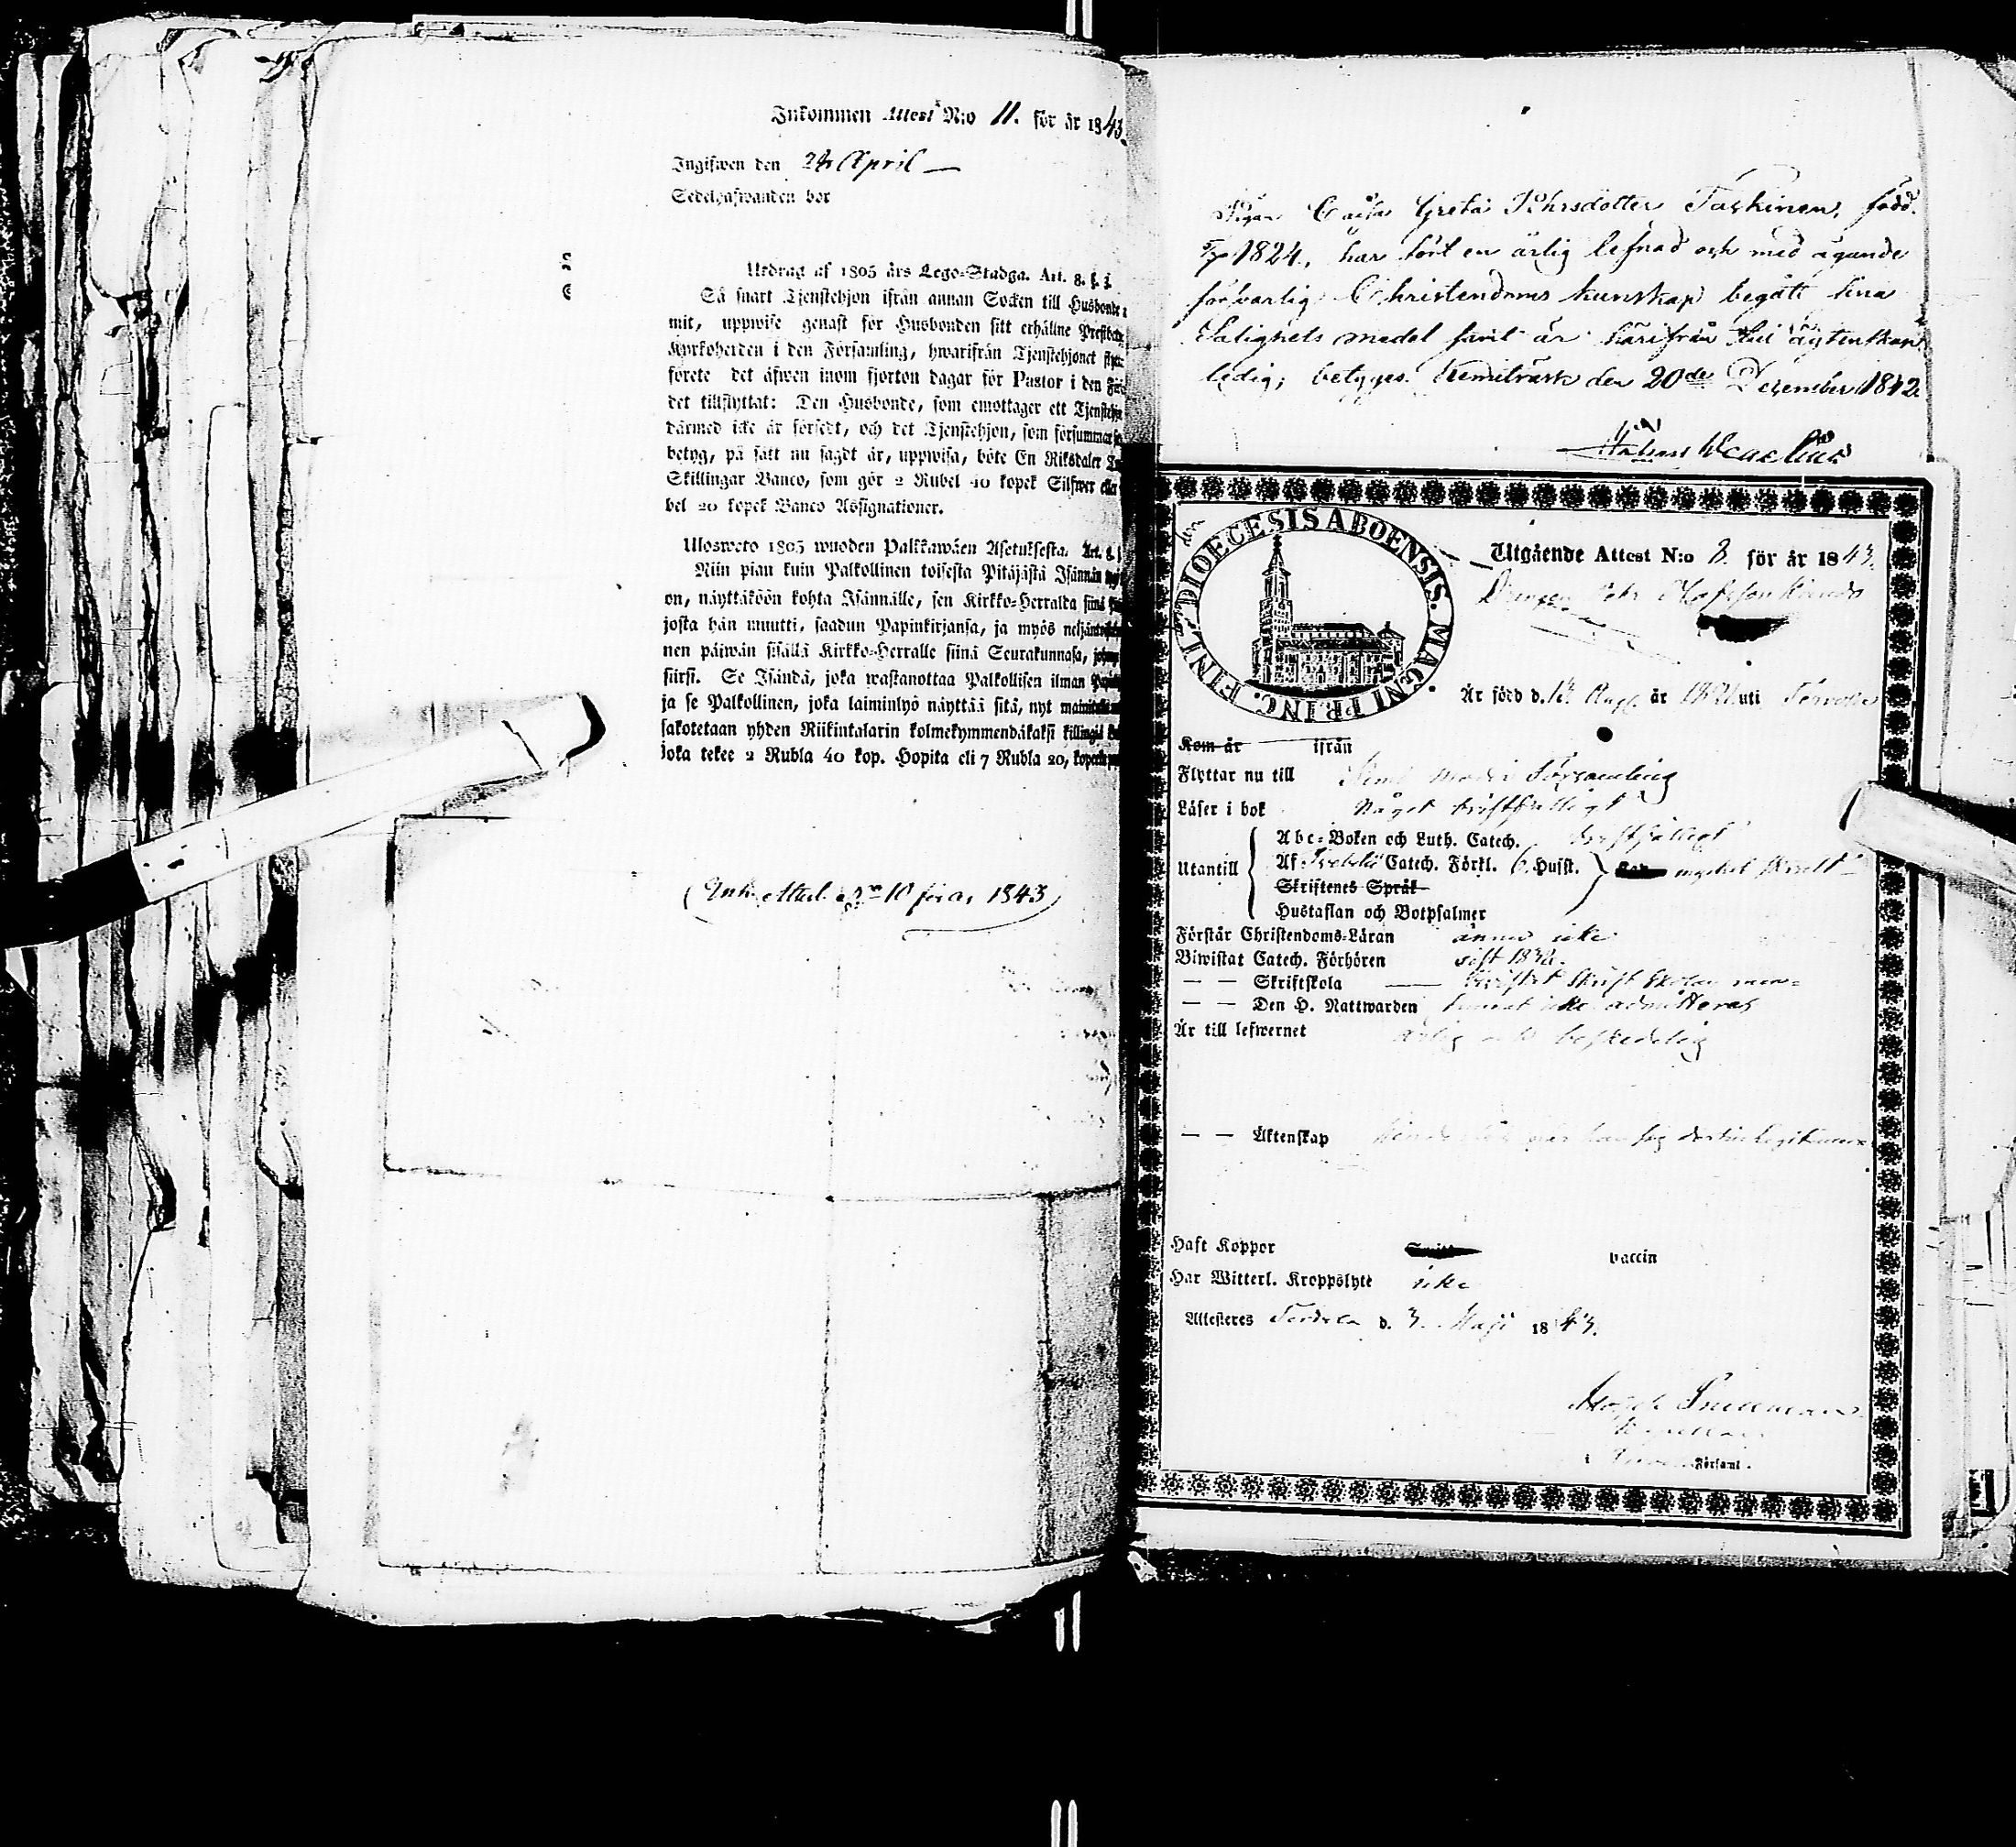 Inkommen Attest N:o 11. för år 1843.
Ingifwen den 24 April —
Sedelhafwanden bor
Utdrag af 1805 års Lego-Stadga. Art. 8. §. 3.
Så snart Tjenstehjon ifrån annan Socken till Husbonde
mit, uppwise genast för Husbonden sitt erhållne
Kyrkoherden i den Församling, hwarifrån Tjenstehjonet
förete det äfwen inom fjorton dagar för Pastor i den
det tillflyttat: Den Husbonde, som emottager ett
därmed icke är försedt, och det Tjenstehjon, som försummar
betyg, på sätt nu sagdt är, uppwisa, böte En Riksdaler
Skillingar Banco, som gör 2 Rubel 40 kopek Silfwer eller
bel 20 kopek Banco Assignationer.
Ulosweto 1805 wuoden Palkkawäen Asetuksesta. Art. 8.
Niin pian kuin Palkollinen toisesta Pitäjästä Isännän
on, näyttäköön kohta Isännälle, sen Kirkko-Herralda siinä
josta hän muutti, saadun Papinkirjansa, ja myös
nen päiwän sisällä Kirkko-Herralle siinä Seurakunnasa,
siirsi. Se Isändä, joka wastanottaa Palkollisen ilman
ja se Palkollinen, joka laiminlyö näyttää sitä, nyt
sakotetaan yhden Riikintalarin kolmekymmendäkaksi killingiä
joka tekee 2 Rubla 40 kop. Hopita eli 7 Rubla 20,
(Ink. Attest. N:o 10 för år 1843)
Pigan Caisa Greta Pehrsdotter Taskinen, född.
1824, har fört en ärlig lefnad och med ägande
försvarlig Christendoms kunskap begått sina
Salighets medel samt är härifrån till ägtenskap
ledig; betygas. Kemiträsk den 20de Dezember 1842.
DIOECESIS ABOENSIS. MAGNI PRINC. FINL.
Utgående Attest N:o 8. för år 1843.
Drengen Pehr
Är född d. 13 Aug. år 1821 uti Tervola
Kom år ifrån
Flyttar nu till Kemi moder Församling
Läser i bok Något bristfälligt
Abc-Boken och Luth. Catech. bristfälligt
Utantill Af Svebelii Catech. Förkl. o. Husst. mycket
Skriftenes Språk
Hustaflan och Botpsalmer
Förstår Christendoms-Läran ännu icke
Biwistat Catech. Förhören sist
— — Skriftskola — bevistat Skrift Skolan men
— — Den H. Nattwarden kunnat icke admitteras
Är till lefwernet ärlig och beskedelig
— — Äktenskap
Haft Koppor vaccin
Har Witterl. Kroppslyte icke
Attesteras Tervola d. 3. Maji 1843.
Församl.